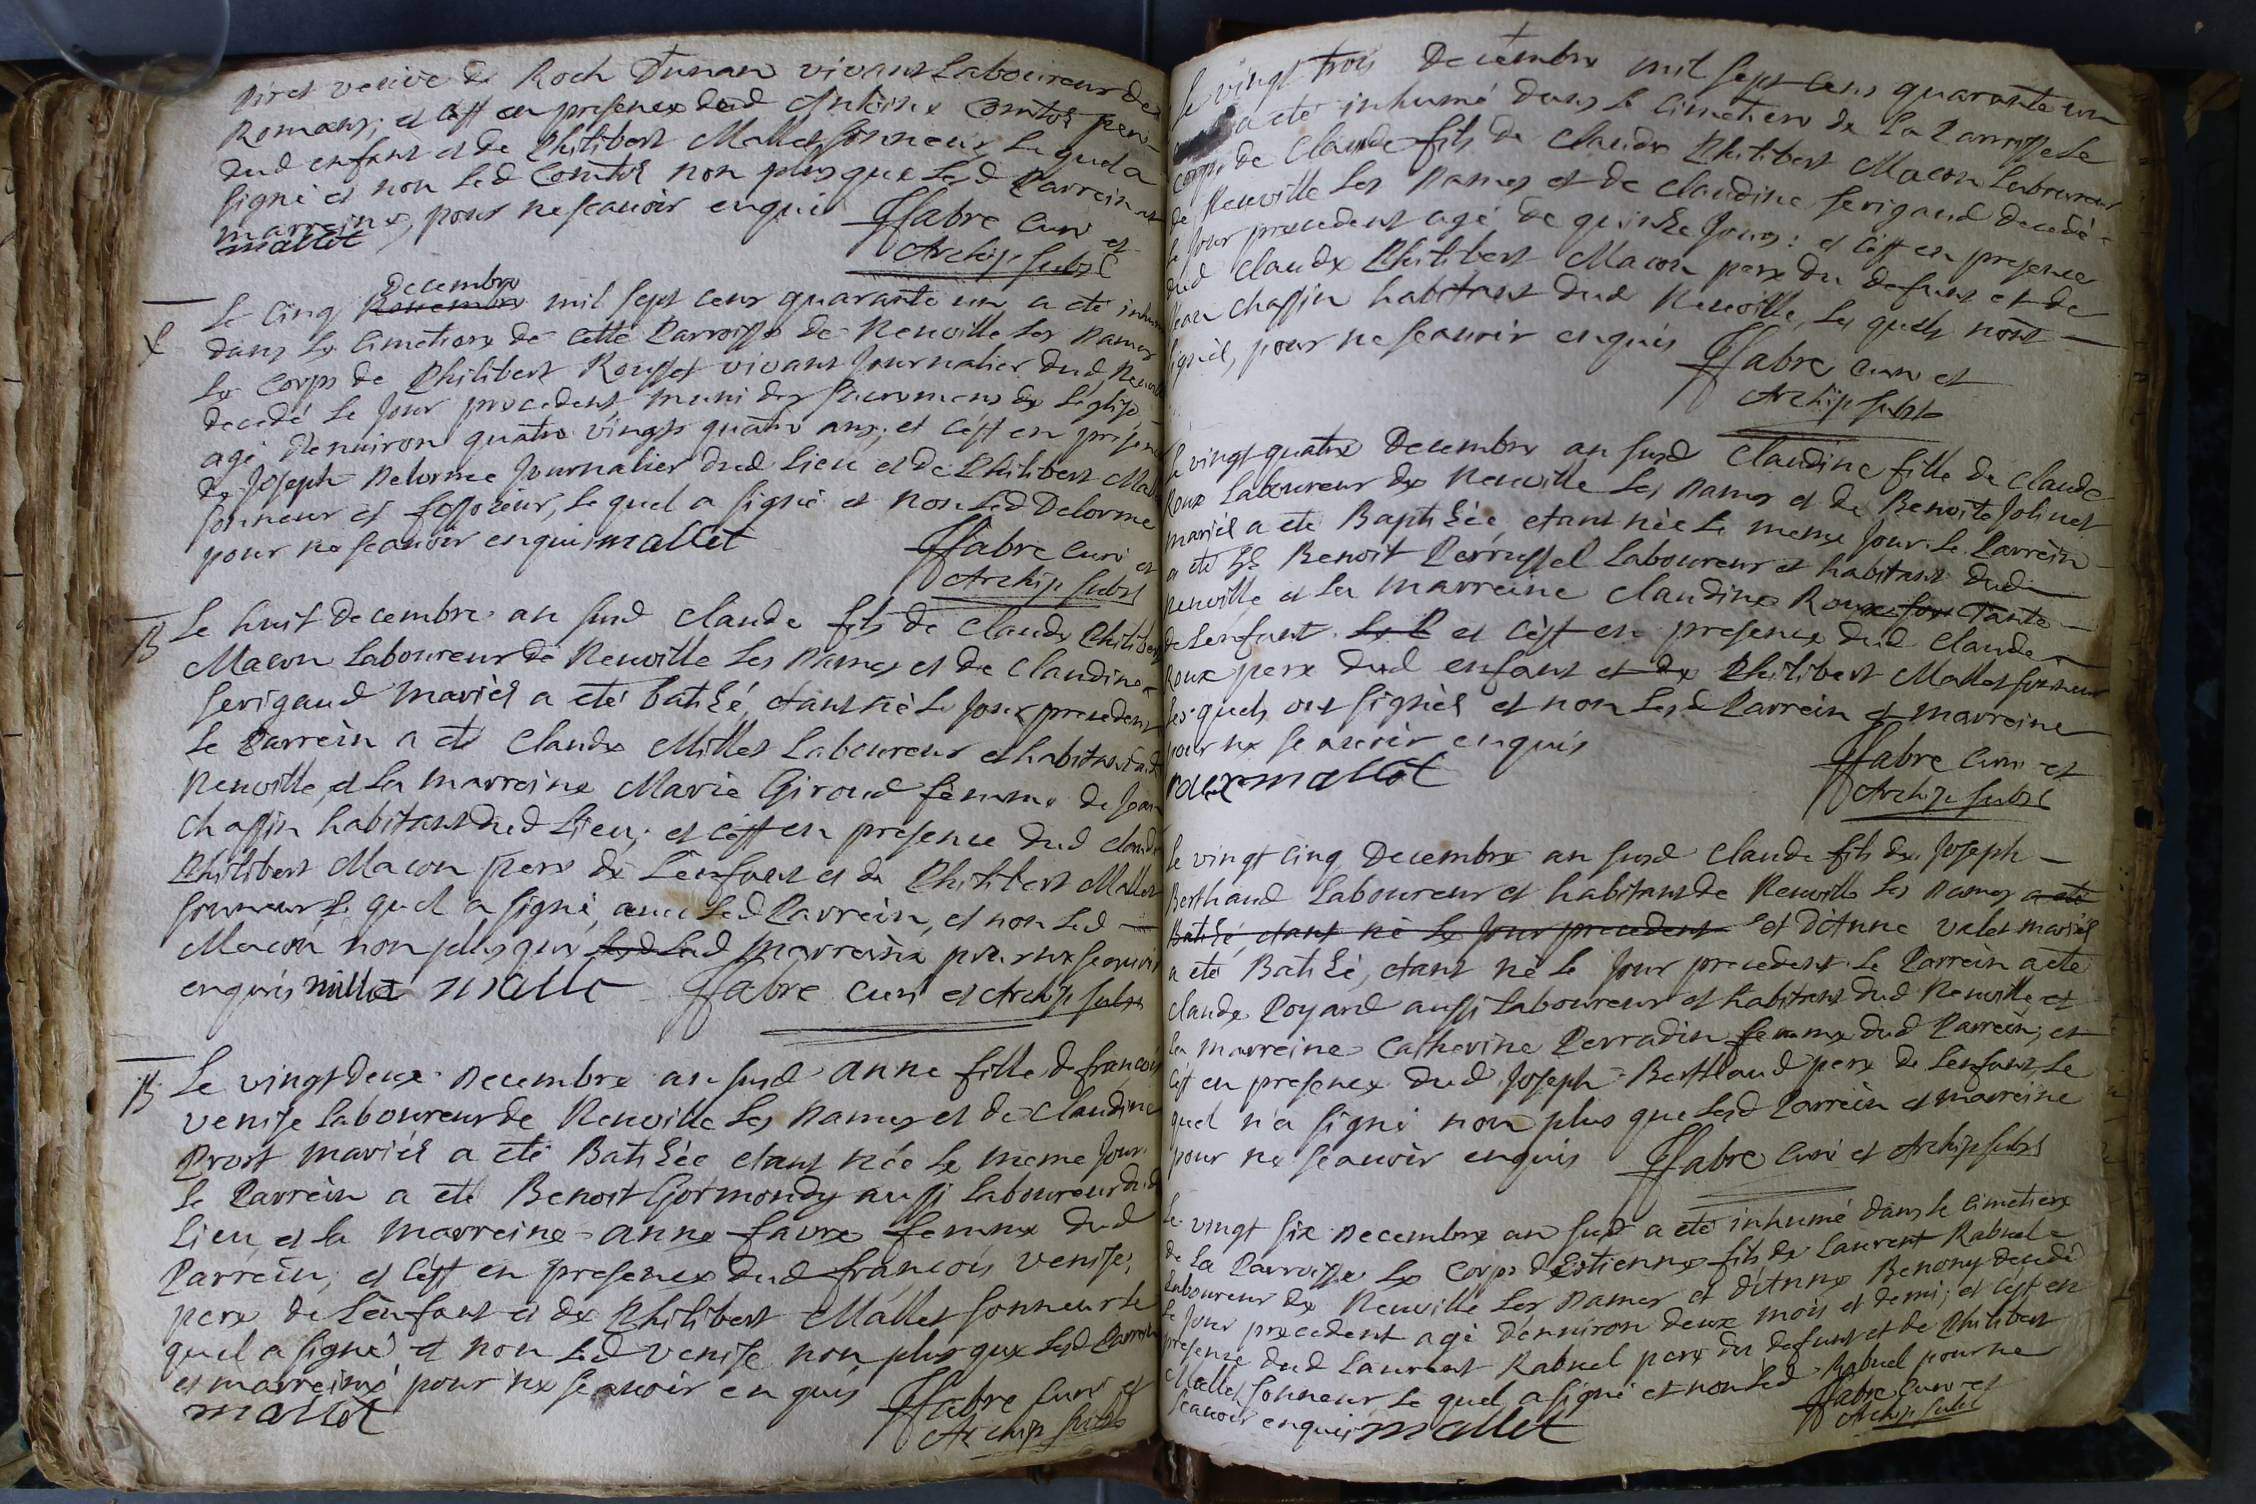 Piret veuve de Roch Dunan vivant Laboureur de
Romans; et c'est en presence dud Antoine Comtet pere
dud enfant et de Philibert Mallet sonneur, Le quel a
signé et non Led Comtet non plus que Lesd Parrein et
marreine, pour ne scauoir enquis FFabre Curé et
mallet Archip subst
decembre
Le cinq Nouembre mil sept cens quarante un a eté inhumé
dans Le Cimetiere de cette Parroisse de Neuville Les Dames
Le Corps de Philibert Rousset vivant Journalier dud Neuville
decedé Le Jour precedent, muni des Sacremens de L'église
agé d'enuiron quatre vingts quatre ans; et c'est en presence
de Joseph Delorme Journalier dud Lieu et de Philibert Mallet
sonneur et fossoieur, Le quel a signé et non Led Delorme
pour ne scauoir enquis mallet FFabre Curé et
Archip subst
B Le huit decembre an susd Claude fils de Claude Philibert
Macon Laboureur de Neuville Les Dames et de Claudine
Serigaud mariés a eté batisé, etant né Le Jour precedent
Le Parrein a eté Claude Millet Laboureur et habitant dud
Neuville, et La marreine Marie Giroud femme de Jean
Chassin habitant dud Lieu; et c'est en presence dud Claude
Philibert Macon pere de L'enfant et de Philibert Mallet
sonneur Le quel a signé, auec Led Parrein, et non Led
Macon non plus que Lad marreine pour ne scauoir
enquis millet mallet FFabre curé et Archip subst
B Le vingt deux Decembre an susd anne fille de francois
venise laboureur de Neuville Les Dames et de Claudine
Prost mariés a eté Batisée etant née Le meme Jour.
Le Parrein a eté Benoit Gormondy aussi Laboureur dud
Lieu et La marreine anne favre femme dud
Parrein; et c'est en presence dud francois venise;
pere de L'enfant et de Philibert Mallet sonneur Le
quel a signé et non Led venise non plus que Lesd Parrein
et marreine pour ne scauoir enquis FFabre Curé et
mallet Archip subst
Le vingt trois Decembre mil sept cens quarante un
a eté inhumé dans Le Cimetiere de La Parroisse Le
Corps de Claude fils de Claude Philibert Macon Laboureur
de Neuville Les Dames et de Claudine Serigaud decedé
Le Jour precedent agé de quinze Jours: et c'est en presence
dud Claude Philibert Macon pere du defunt et de
Jean Chassin habitant dud Neuville, Les quels n'ont
signés, pour ne scauoir enquis FFabre Curé et
Archip subst
Le vingt quatre Decembre an susd Claudine fille de Claude
Roux Laboureur de Neuville Les Dames et de Benoite Jolinet
mariés a eté Baptisée, etant née Le meme Jour. Le Parrein
a eté Benoit Perrussel Laboureur et habitant dud
Neuville et La marreine Claudine Roux Tante
de L'enfant. Le P et c'est en presence dud Claude
Roux pere dud enfant et de Philibert Mallet sonneur
Les quels ont signés et non Lesd Parrein et marreine
pour ne scauoir enquis FFabre Curé et
roux mallet Archip subst
Le vingt cinq Decembre an susd Claude fils de Joseph
Berthaud Laboureur et habitant de Neuville Les Dames a eté
Batisé, etant né Le Jour precedent et d'Anne valet mariés
a eté Batisé, etant né Le Jour precedent. Le Parrein a eté
Claude Poyard aussi Laboureur et habitant dud Neuville et
La marreine Catherine Perradin femme dud Parrein; et
c'est en presence dud Joseph Berthaud pere de L'enfant, Le
quel n'a signé non plus que Lesd Parrein et marreine
pour ne scauoir enquis FFabre Curé et Archip subst
Le vingt six Decembre an susd a eté inhumé dans Le Cimetiere
de La Parroisse Le Corps d'Estienne fils de Laurent Rabuel
Laboureur de Neuville Les Dames et d'Anne Benony decedé
Le Jour precedent agé d'enuiron deux mois et demi; et c'est en
presence dud Laurent Rabuel pere du defunt et de Philibert
Mallet sonneur, Le quel a signé et non Led Rabuel pour ne
scauoir enquis mallet FFabre Curé et
Archip subst